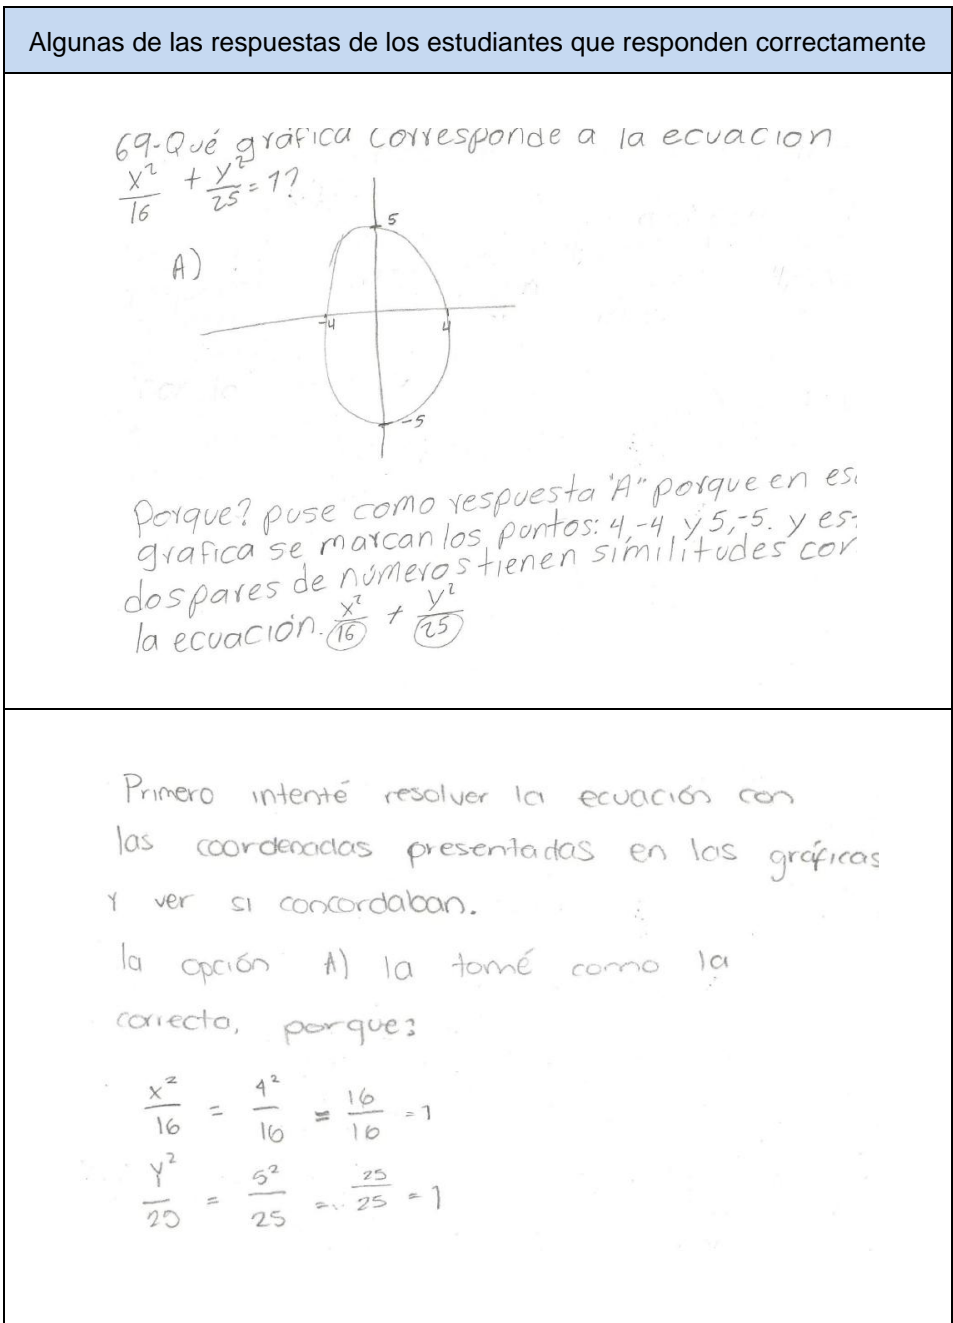 Algunas de las respuestas de los estudiantes que responden correctamente
69-Qué gráfica corresponde a la ecuacion
x²/16 + y²/25 = 1?
A)
5
-4 4
-5
Porque? puse como respuesta "A" porque en es
grafica se marcan los puntos: 4,-4 y 5,-5. y es
dos pares de números tienen similitudes con
la ecuación. x²/16 + y²/25
Primero intenté resolver la ecuación con
las coordenadas presentadas en las gráficas
Y ver si concordaban.
la opción A) la tomé como la
correcta, porque:
x²/16 = 4²/16 = 16/16 = 1
y²/25 = 5²/25 = 25/25 = 1